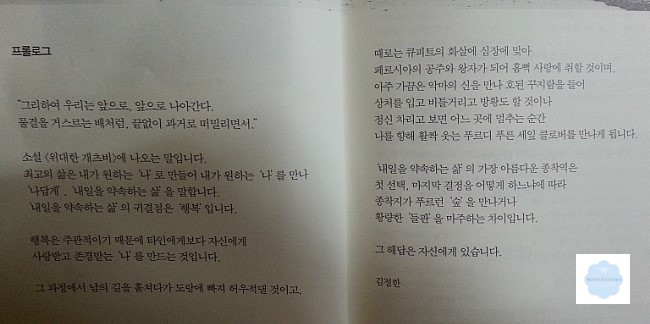 프롤로그
"그리하여 우리는 앞으로, 앞으로 나아간다.
물결을 거스르는 배처럼, 끝없이 과거로 떠밀리면서."
소설 〈위대한 개츠비〉에 나오는 말입니다.
최고의 삶은 내가 원하는 '나'로 만들어 내가 원하는 '나'를 만나
'나답게', '내일을 약속하는 삶'을 말합니다.
'내일을 약속하는 삶'의 귀결점은 '행복'입니다.
행복은 주관적이기 때문에 타인에게보다 자신에게
사랑받고 존경받는 '나'를 만드는 것입니다.
그 과정에서 남의 길을 훔쳐다가 도랑에 빠져 허우적댈 것이고,
때로는 큐피트의 화살에 심장에 맞아
페르시아의 공주와 왕자가 되어 흠뻑 사랑에 취할 것이며,
아주 가끔은 악마의 신을 만나 호된 꾸지람을 들어
상처를 입고 비틀거리고 방황도 할 것이나
정신 차리고 보면 어느 곳에 멈추는 순간
나를 향해 활짝 웃는 푸르디 푸른 세잎 클로버를 만나게 됩니다.
'내일을 약속하는 삶'의 가장 아름다운 종착역은
첫 선택, 마지막 결정을 어떻게 하느냐에 따라
종착지가 푸르런 '숲'을 만나거나
황량한 '들판'을 마주하는 차이입니다.
그 해답은 자신에게 있습니다.
김정한